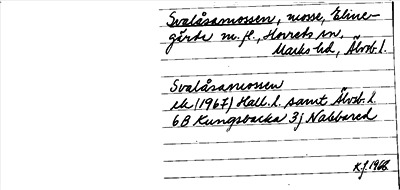 Svalåsamossen, mosse, Eline-
gärde m.fl., Horreds sn,
Marks hd, Älvsb. l.
Svalåsamossen
ek (1967) Hall. l. samt Älvsb. l.
6B Kungsbacka 3j Nabbared
KJ 1968